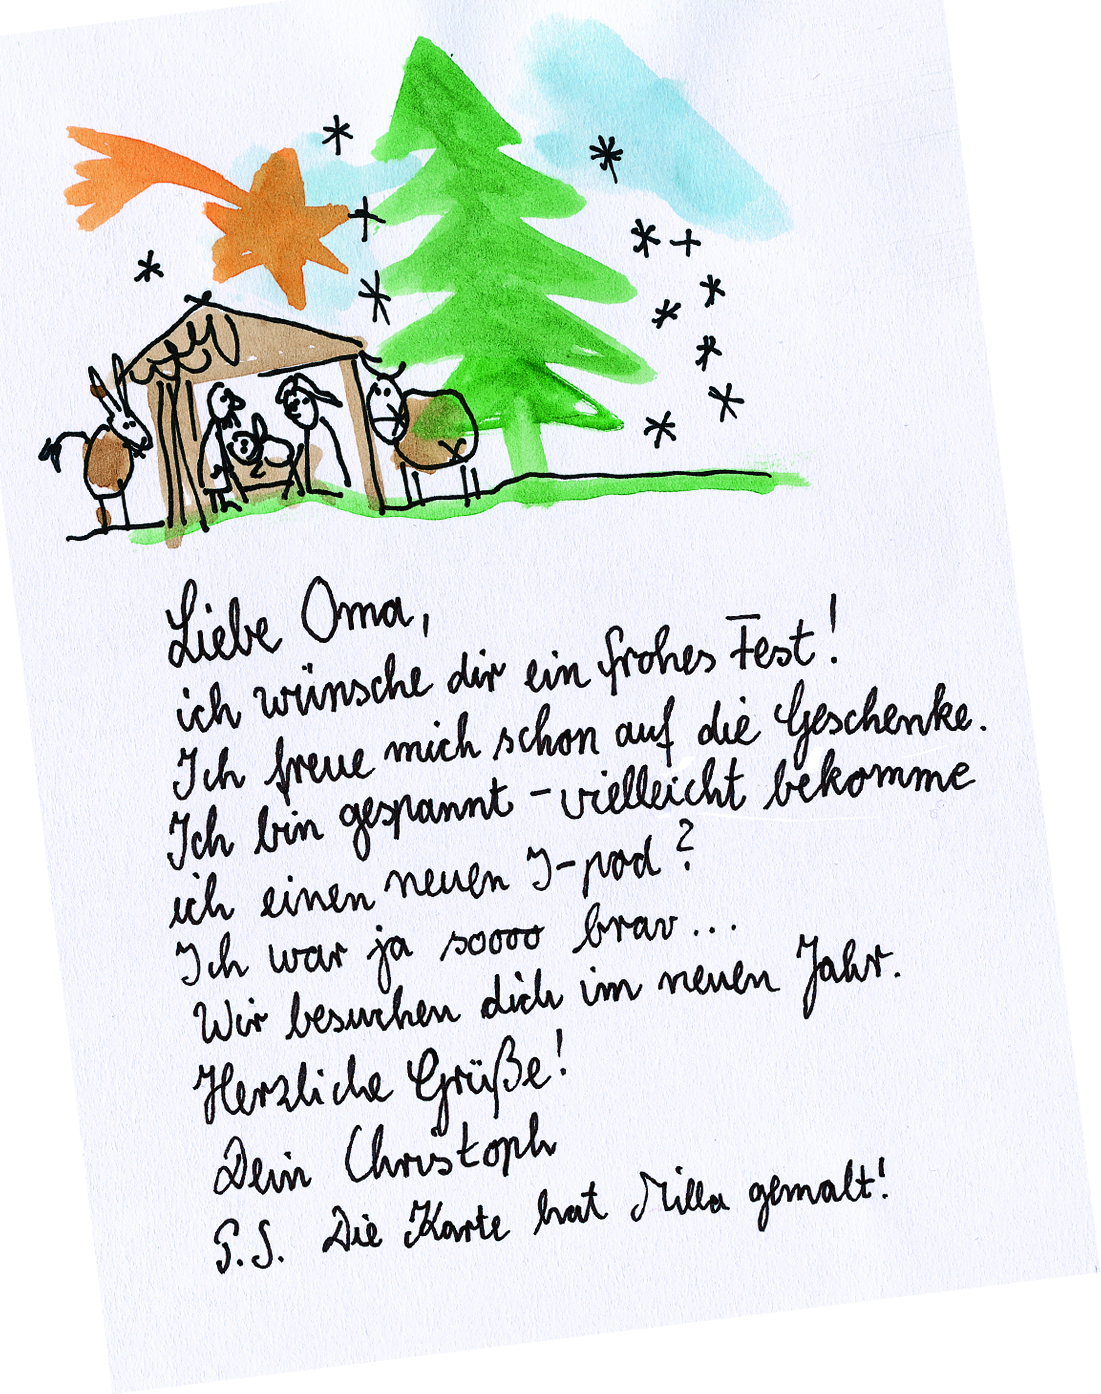 Liebe Oma,
ich wünsche dir ein frohes Fest!
Ich freue mich schon auf die Geschenke.
Ich bin gespannt - vielleicht bekomme
ich einen neuen I-pod?
Ich war ja soooo brav...
Wir besuchen dich im neuen Jahr.
Herzliche Grüße!
Dein Christoph
P.S. Die Karte hat Milla gemalt!